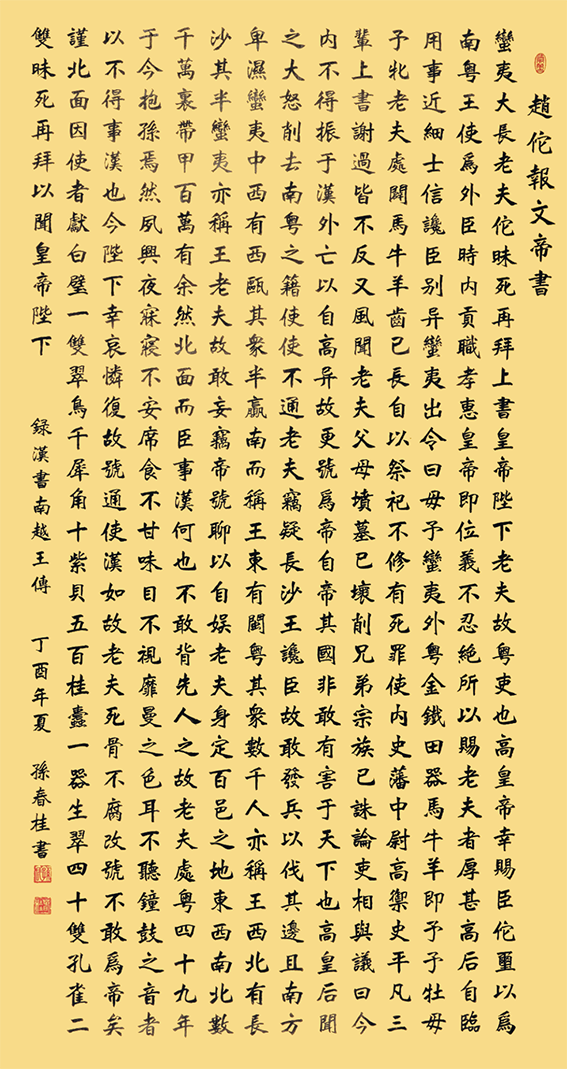 趙佗報文帝書
蠻夷大長老夫佗昧死再拜上書皇帝陛下老夫故粤吏也高皇帝幸賜臣佗璽以爲
南粤王使爲外臣時内貢職孝惠皇帝即位義不忍絶所以賜老夫者厚甚高后自臨
用事近細士信讒臣别异蠻夷出令曰毋予蠻夷外粤金鐵田器馬牛羊即予予牡毋
予牝老夫處闢馬牛羊齒已長自以祭祀不修有死罪使内史藩中尉高禦史平凡三
輩上書謝過皆不反又風聞老夫父母墳墓已壞削兄弟宗族已誅論吏相與議曰今
内不得振于漢外亡以自高异故更號爲帝自帝其國非敢有害于天下也高皇后聞
之大怒削去南粤之籍使使不通老夫竊疑長沙王讒臣故敢發兵以伐其邊且南方
卑濕蠻夷中西有西甌其衆半羸南而稱王東有閩粤其衆數千人亦稱王西北有長
沙其半蠻夷亦稱王老夫故敢妄竊帝號聊以自娱老夫身定百邑之地東西南北數
千萬裏帶甲百萬有余然北面而臣事漢何也不敢背先人之故老夫處粤四十九年
于今抱孫焉然夙興夜寐寢不安席食不甘味目不視靡曼之色耳不聽鐘鼓之音者
以不得事漢也今陛下幸哀憐復故號通使漢如故老夫死骨不腐改號不敢爲帝矣
謹北面因使者獻白璧一雙翠鳥千犀角十紫貝五百桂蠹一器生翠四十雙孔雀二
雙昧死再拜以聞皇帝陛下 録漢書南越王傳 丁酉年夏 孫春桂書